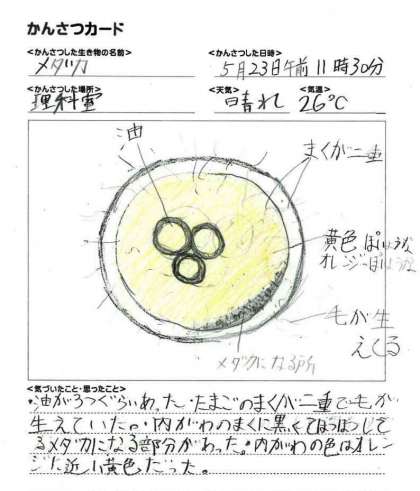 かんさつカード
<かんさつした生き物の名前>
メダカ
<かんさつした日時>
5月23日午前11時30分
<かんさつした場所>
理科室
<天気>
晴れ
<気温>
26℃
油
まくが二重
黄色っぽいような
オレンジっぽいような
毛が生
えてる
メダカになる所
<気づいたこと・思ったこと>
・油が3つぐらいあった。・たまごのまくが二重で毛が
生えていた。・内がわのまくに黒くてぼつぼつして
るメダカになる部分があった。内がわの色はオレン
ジに近い黄色だった。